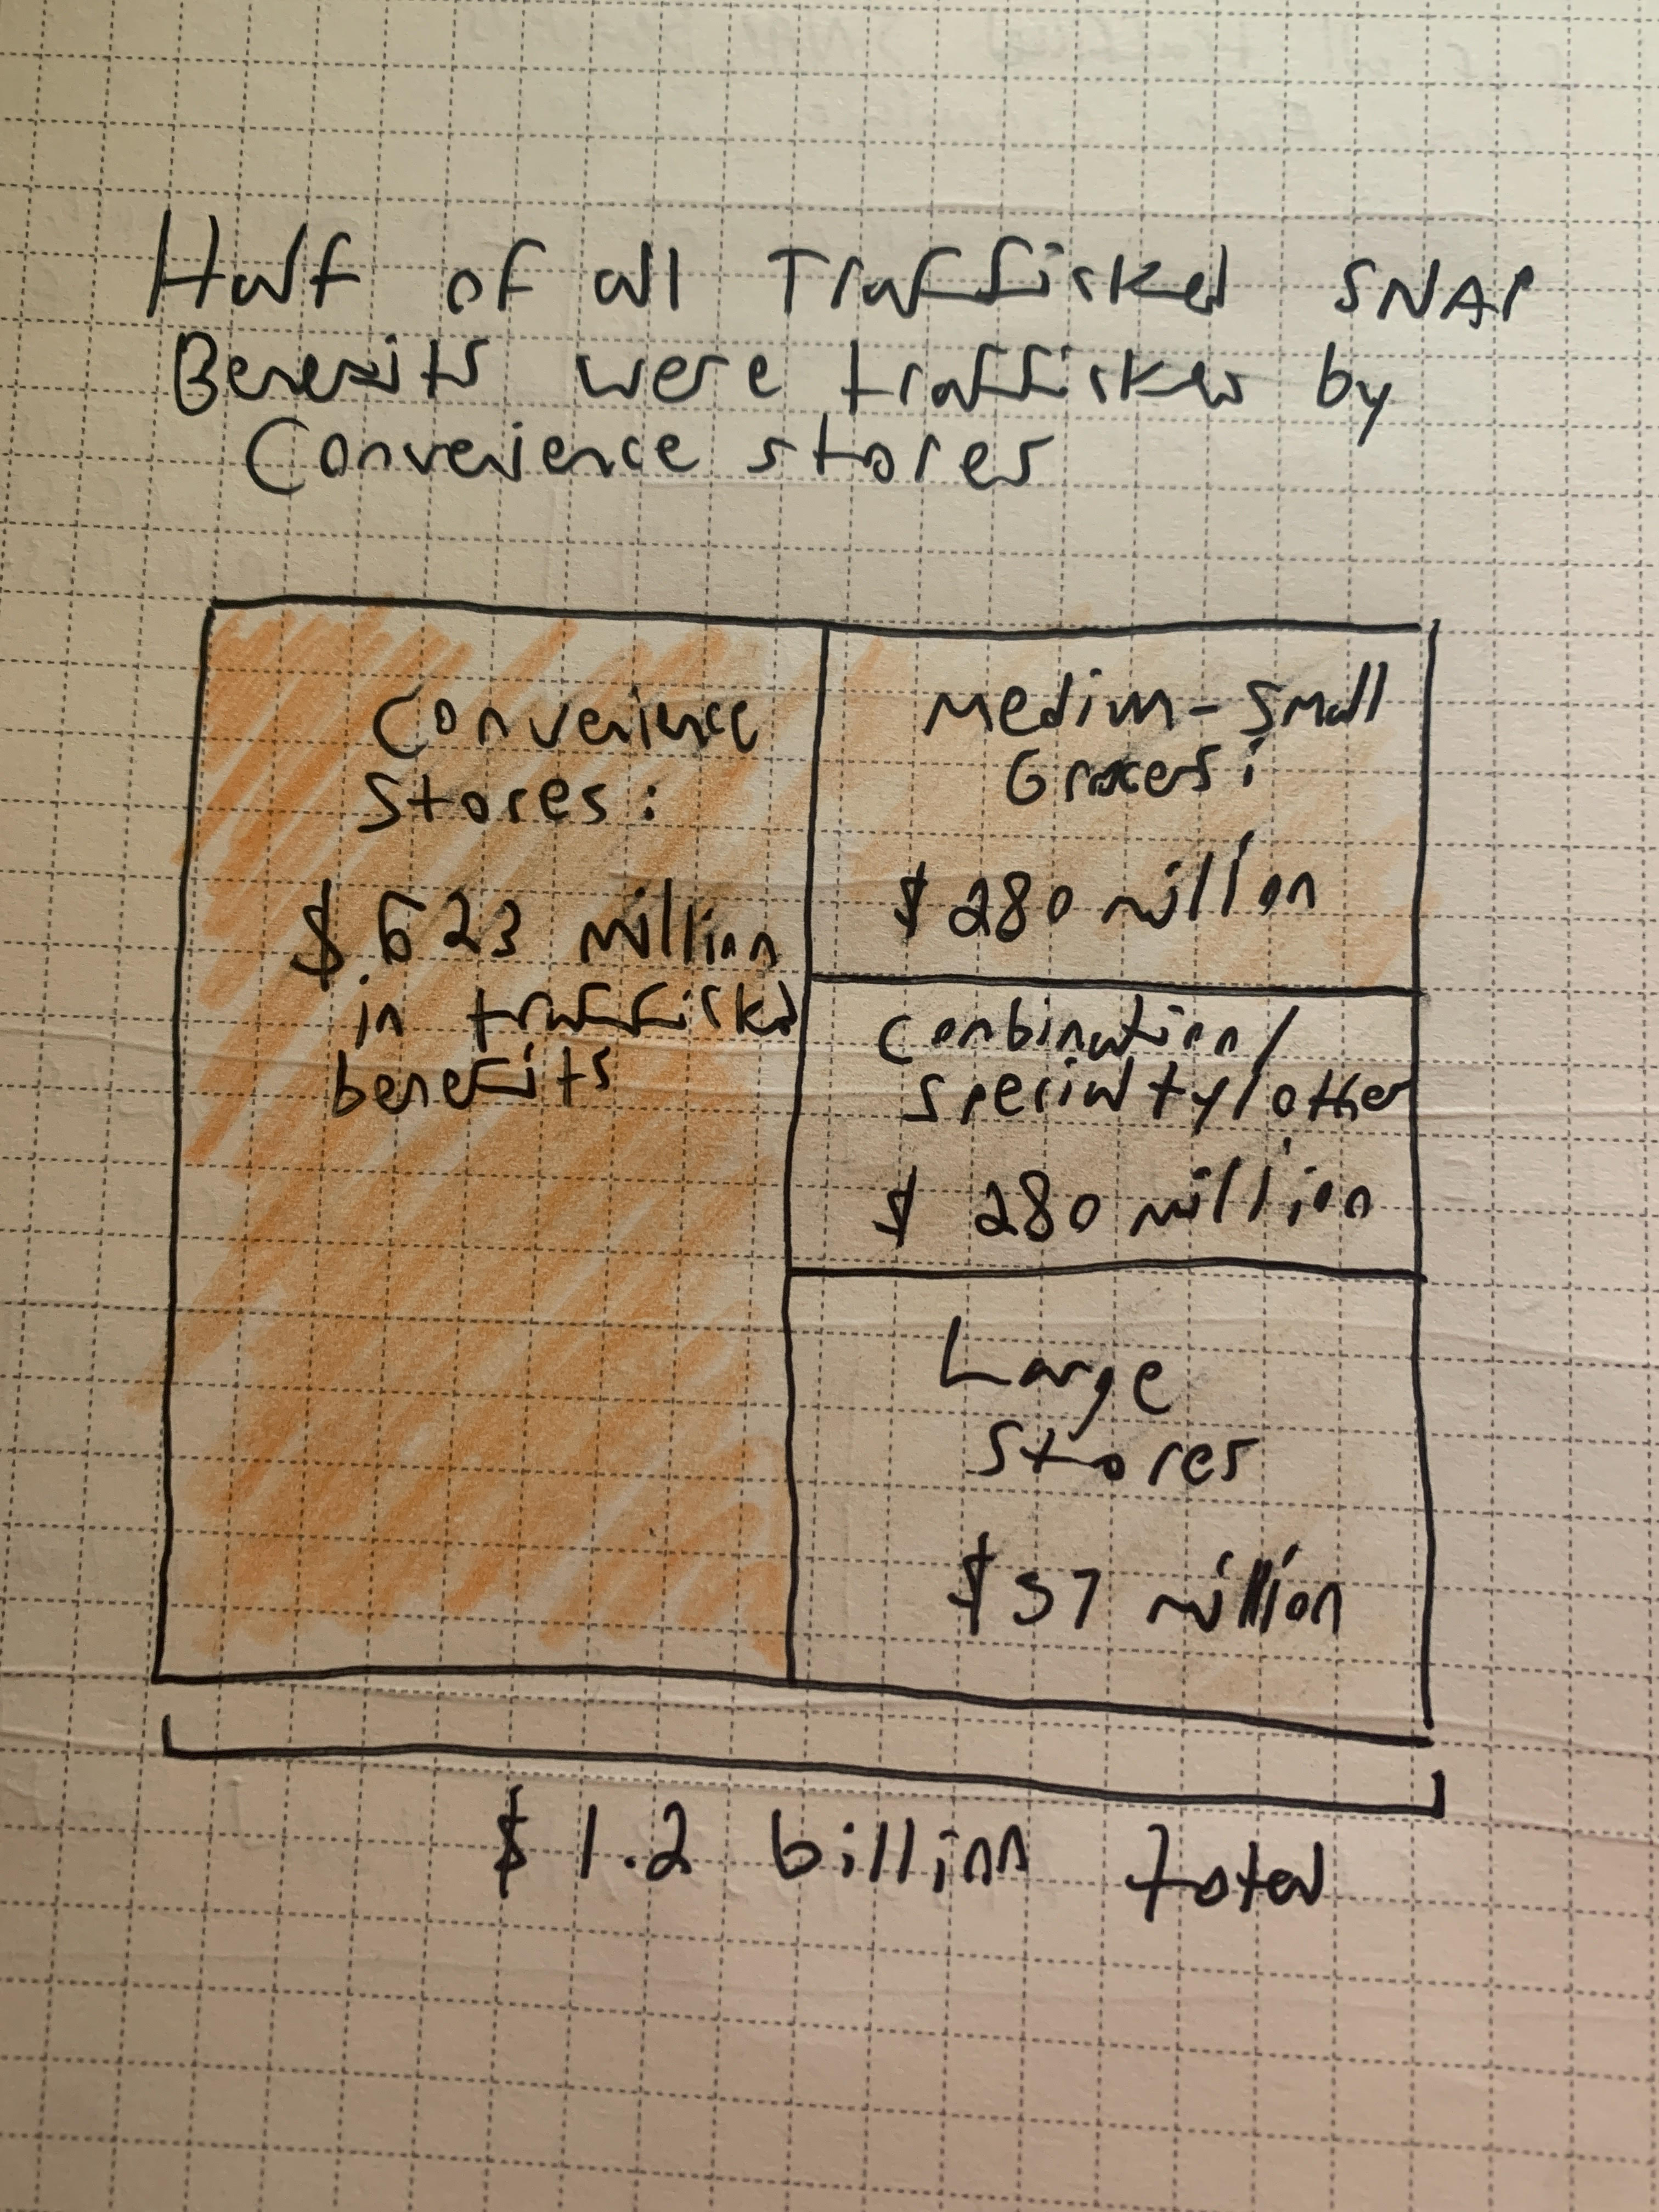 Half of all Trafficked SNAP
Benefits were trafficked by
Convenience stores
Convenience
Stores:
$623 million
in trafficked
benefits
Medium-Small
Grocers:
$280 million
Combination/
specialty/other
$280 million
Large
Stores
$37 million
$1.2 billion total